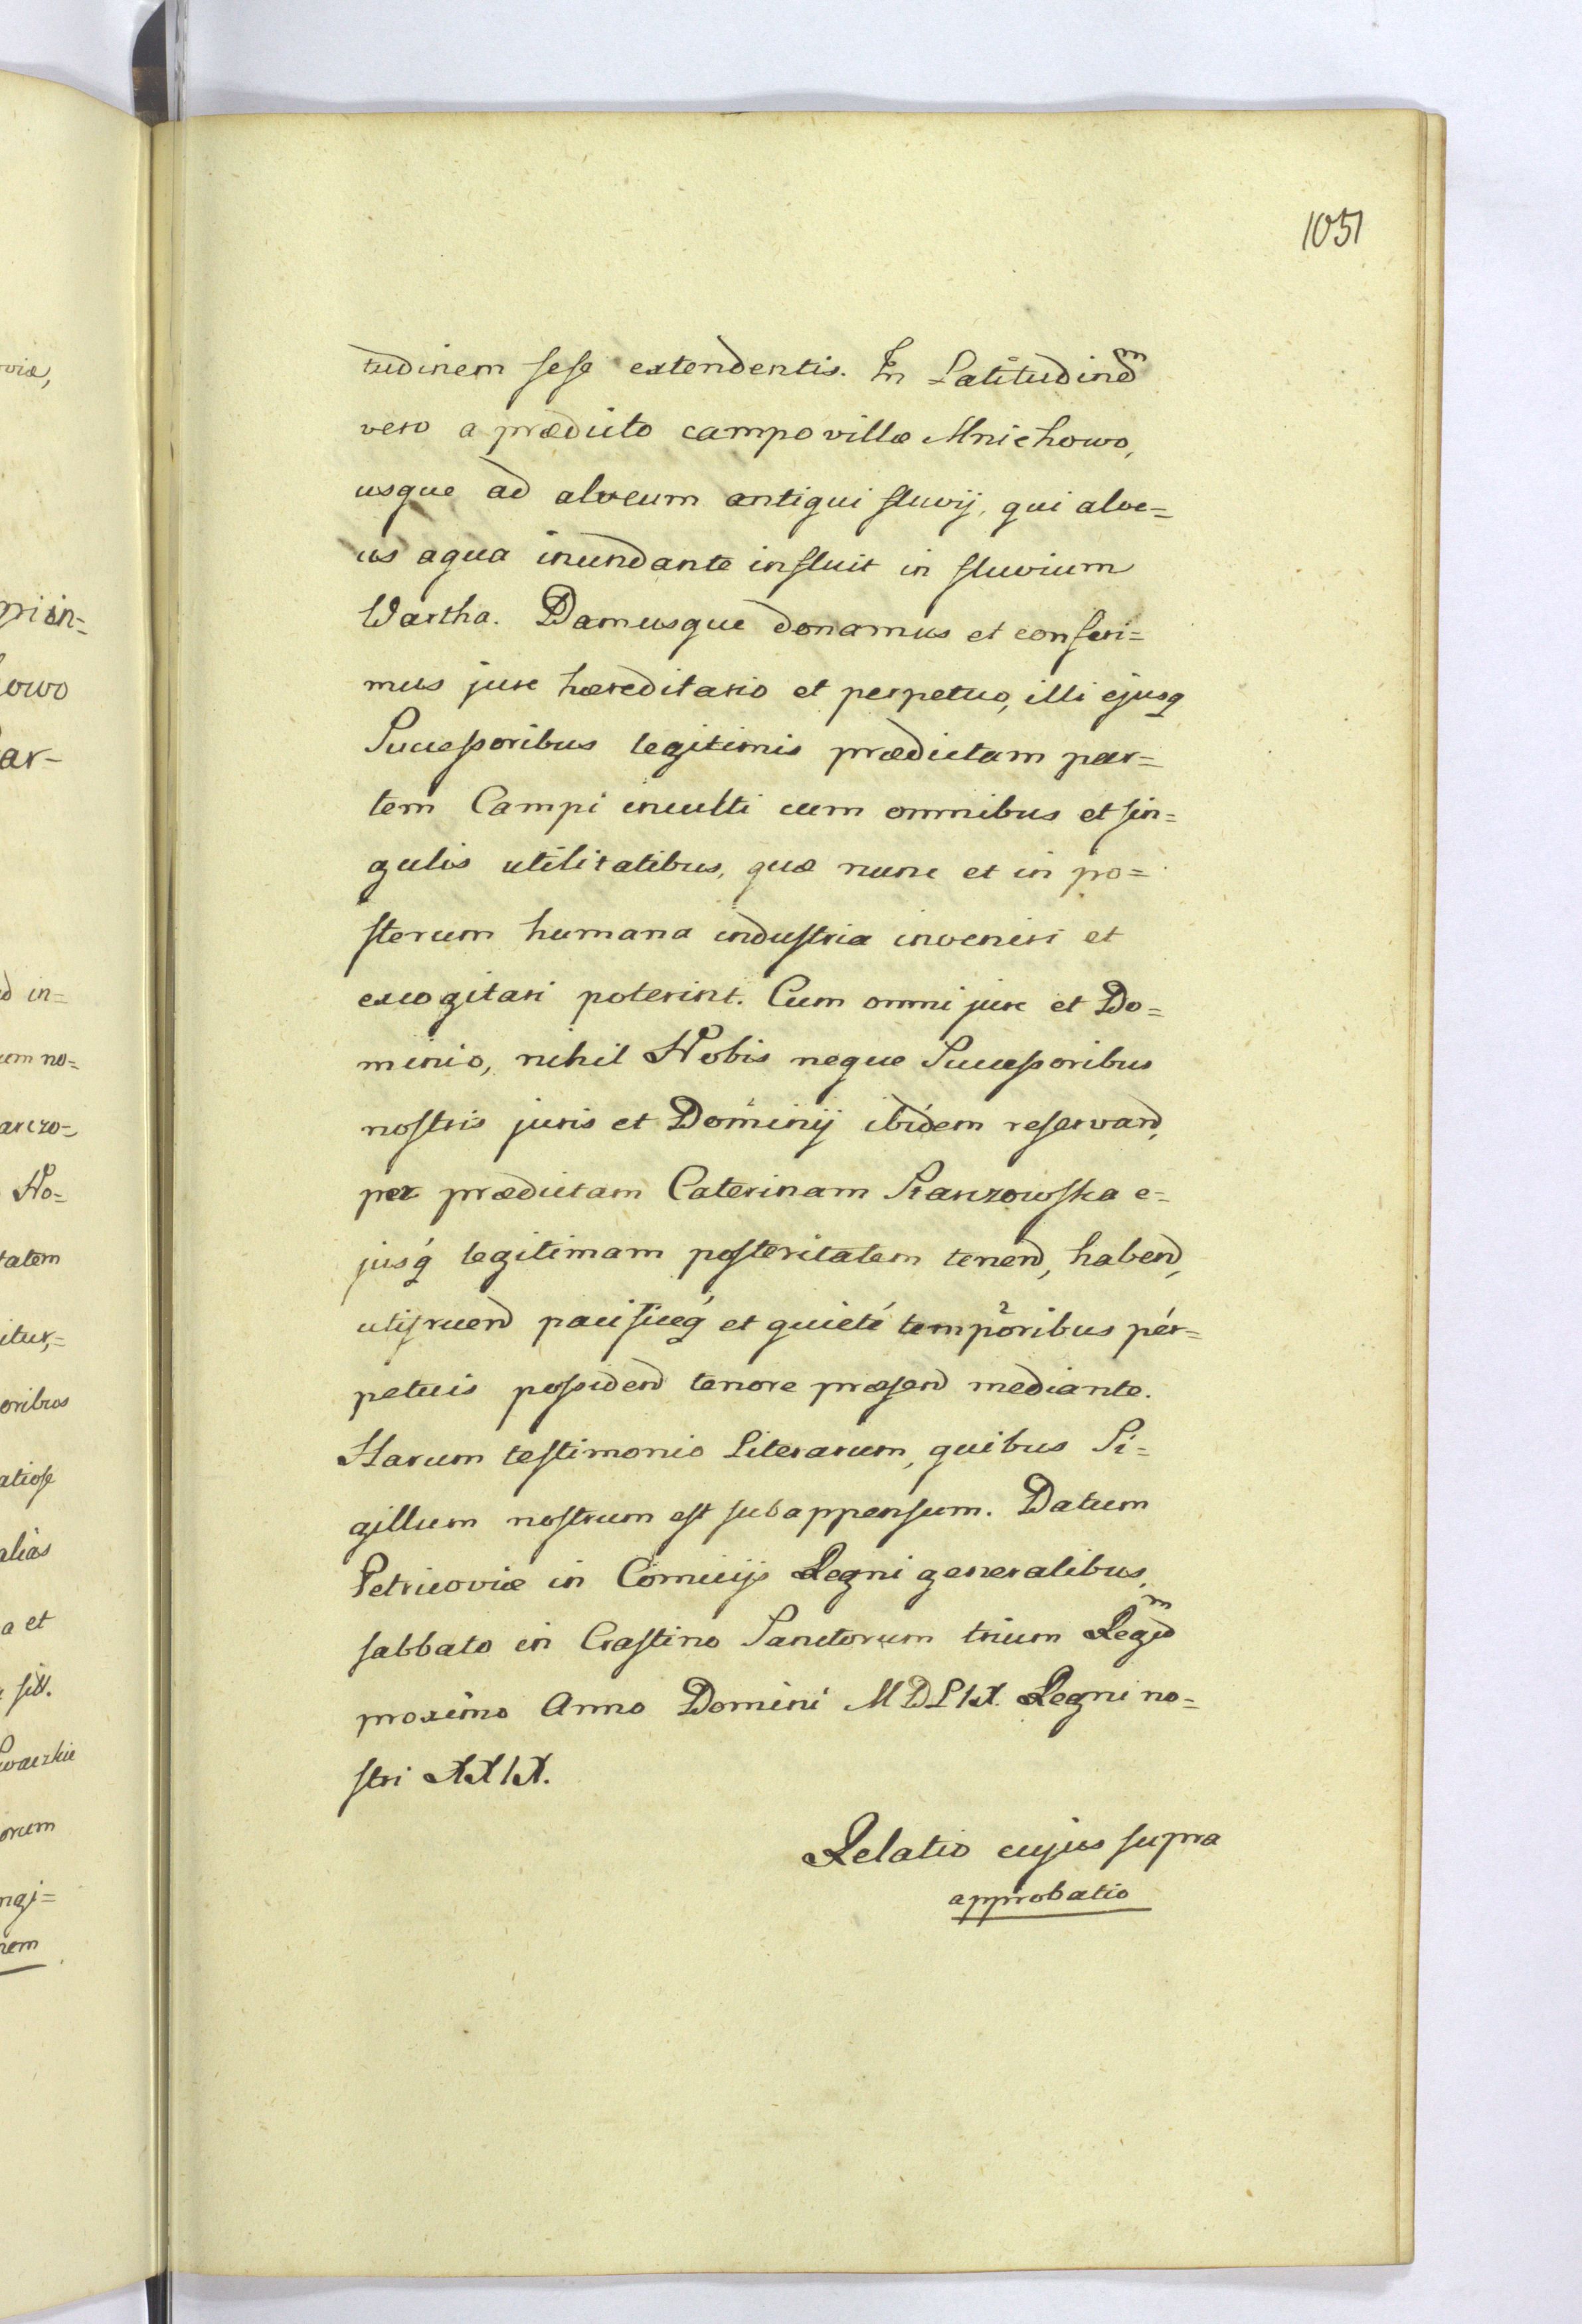 1051
tudinem sese extendentis. In Latitudinem
vero a prædicto campo villæ Mnichowo,
usque ad alveum antiqui fluvij, qui alve=
us aqua inundante influit in fluvium
Wartha. Damusque donamus et conferi=
mus jure hæreditario et perpetuo, illi ejusq
Successoribus legitimis prædictam par=
tem Campi inculti cum omnibus et sin=
gulis utilitatibus, quæ nunc et in po=
sterum humana industria inveniri et
excogitari poterint. Cum omni jure et Do=
minio, nihil Nobis neque Successoribus
nostris juris et Dominij ibidem reservand,
per prædictam Caterinam e=
jusq legitimam posteritatem tenend, habend,
utifruend pacificeq et quiete temporibus per=
petuis possidend tenore præsend mediante.
Harum testimonio Literarum, quibus Si=
gillum nostrum est subappensum. Datum
Petricoviæ in Comicijs Regni generalibus,
sabbato in Crastino Sanctorum trium Regum
proximo Anno Domini MDLIX. Regni no=
stri XXIX.
Relatio cujus supra
approbatio
viæ,
owo
ar-
d in=
um no=
arczo=
No=
tatem
itur,=
oribus
atiose
alias
a et
orum
nem